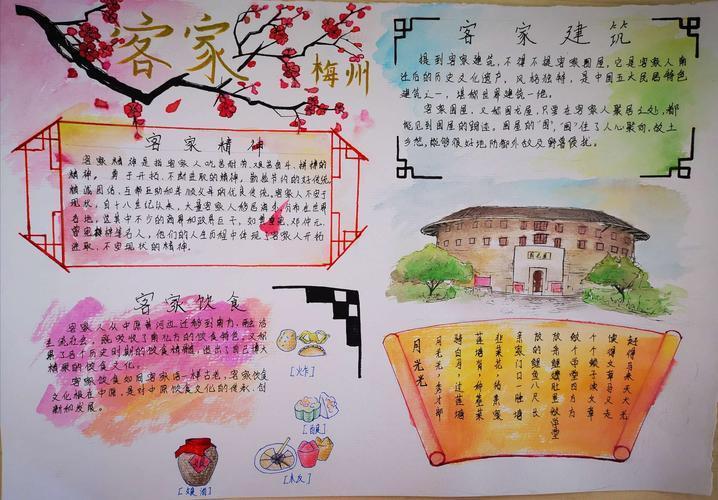 客家
梅州
客家精神
客家精神是指客家人吃苦耐劳、艰苦奋斗、拼搏的
精神。勇于开拓、不断进取的精神。勤俭节约的好传统
精诚团结、互帮互助和孝顺父母的优良传统。客家人不安于
现状，自十八世纪以来，大量客家人移居海外，分布在世界
各地，这其中不少的商界和政界巨子，如
他们的人生历程中体现了客家人开拓
进取、不安现状的精神。
客家建筑
提到客家建筑，不得不提客家围屋，它是客家人南
迁后的历史文化遗产，风格独特，是中国五大民居特色
建筑之一，堪称世界建筑一绝。
客家围屋，又称围龙屋，只要在客家人聚居之处，都
能见到围屋的踪迹。围屋的“围”，“围”住了人心聚向，故土
乡愁，能够很好地防御外敌及野兽侵扰。
客家饮食
客家人从中原黄河边迁移到南方，融洽
主流社会，既吸收了南北方的饮食特色，又积
累了各个历史时期的饮食精髓，造出了自己博大
精深的饮食文化。
客家饮食如同客家语一样古老，客家饮食
文化根在中原，是对中原饮食文化的传承、创
新和发展。
[火炸]
[酿]
[木反]
[娘酒]
月光光
月光光，秀才郎
骑白马，过莲塘
莲塘背，种韭菜
韭菜花，结亲家
亲家门口一口塘
放的鲤鱼八尺长